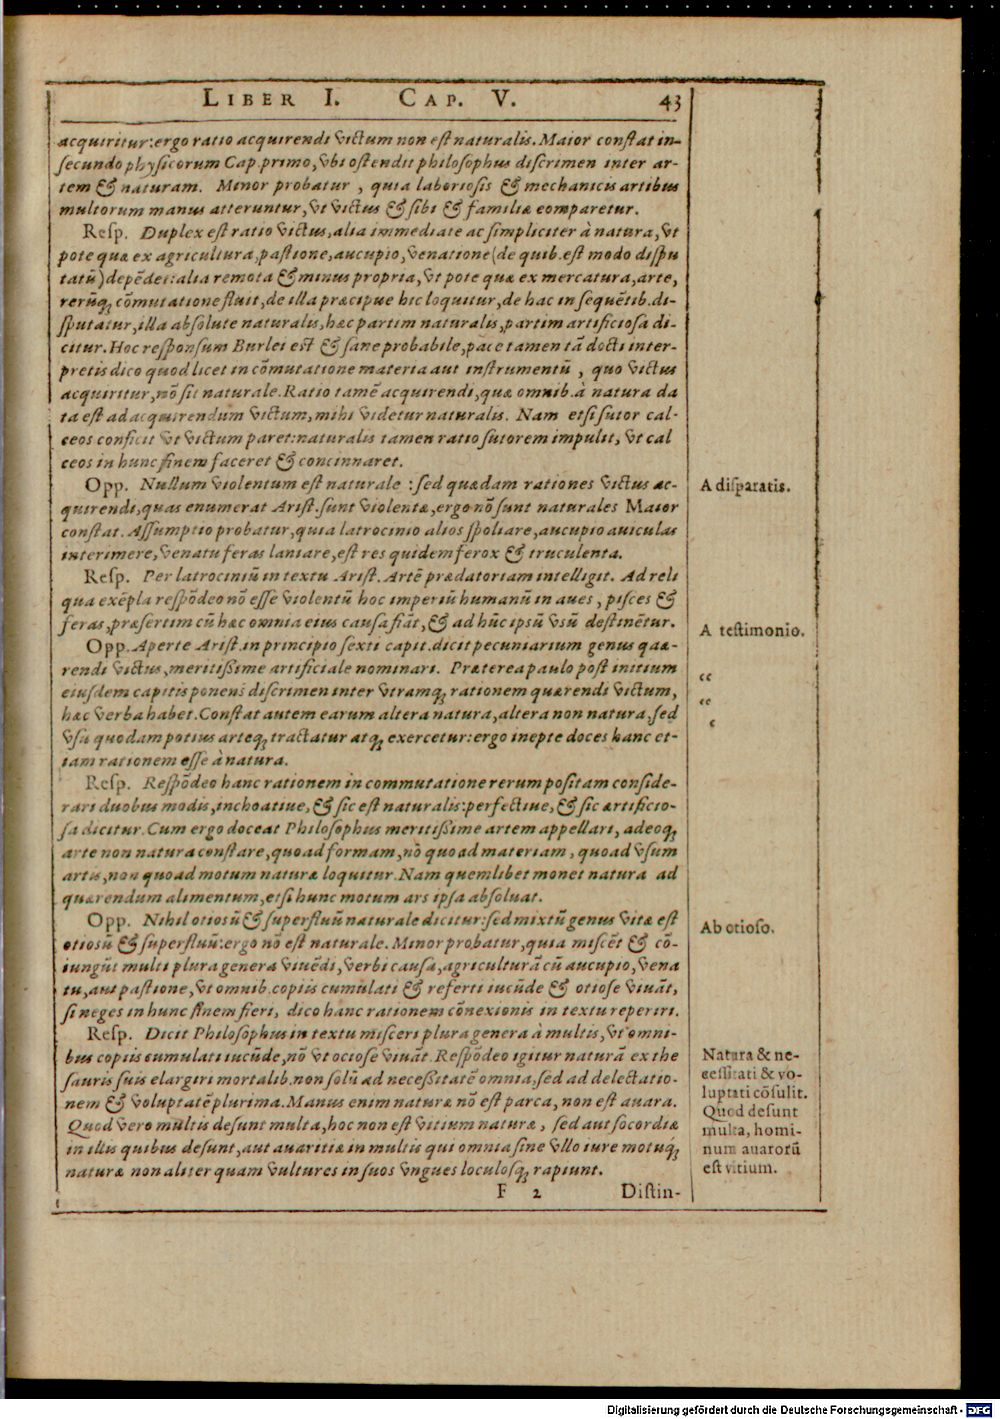 LIBER I. CAP. V. 43
acquiritur: ergo ratio acquirendi victum non est naturalis. Maior constat in-
secundo physicorum Cap. primo, vbi ostendit philosophus discrimen inter ar-
tem & naturam. Minor probatur, quia laboriosis & mechanicis artibus
multorum manus atteruntur, vt victus & sibi & familiæ comparetur.
Resp. Duplex est ratio victus, alia immediate ac simpliciter à natura, vt
pote quæ ex agricultura, pastione, aucupio, venatione (de quib. est modo dispu
tatũ) depẽdet: alia remota & minus propria, vt pote quæ ex mercatura, arte,
rerũq; cõmutatione fluit, de illa præcipue hic loquitur, de hac in sequẽtib. di-
sputatur, illa absolute naturalis, hæc partim naturalis, partim artificiosa di-
citur. Hoc responsum Burlei est & sane probabile, pace tamen tã docti inter-
pretis dico quod licet in cõmutatione materia aut instrumentũ, quo victus
acquiritur, nõ sit naturale. Ratio tamẽ acquirendi, quæ omnib. à natura da
ta est ad acquirendum victum, mihi videtur naturalis. Nam etsi sutor cal-
ceos conficit vt victum paret: naturalis tamen ratio sutorem impulit, vt cal
ceos in hunc finem faceret & concinnaret.
Opp. Nullum violentum est naturale: sed quædam rationes victus ac-
quirendi, quas enumerat Arist. sunt violentæ, ergo nõ sunt naturales Maior
constat. Assumptio probatur, quia latrocinio alios spoliare, aucupio auiculas
interimere, venatu feras laniare, est res quidem ferox & truculenta.
Resp. Per latrociniũ in textu Arist. Artẽ prædatoriam intelligit. Ad reli
qua exẽpla respõdeo nõ esse violentũ hoc imperiũ humanũ in aues, pisces &
feras, præsertim cũ hæc omnia eius causa fiãt, & ad hũc ipsũ vsũ destinẽtur.
Opp. Aperte Arist. in principio sexti capit. dicit pecuniarium genus quæ-
rendi victus, meritißime artificiale nominari. Præterea paulo post initium
eiusdem capitis ponens discrimen inter vtramq; rationem quærendi victum,
hæc verba habet. Constat autem earum altera natura, altera non natura, sed
vsu quodam potius arteq; tractatur atq; exercetur: ergo inepte doces hanc et-
iam rationem esse à natura.
Resp. Respõdeo hanc rationem in commutatione rerum positam conside-
rari duobus modis, inchoatiue, & sic est naturalis: perfectiue, & sic artificio-
sa dicitur. Cum ergo doceat Philosophus meritißime artem appellari, adeoq;
arte non natura constare, quo ad formam, nõ quo ad materiam, quo ad vsum
artis, non quo ad motum naturæ loquitur. Nam quemlibet monet natura ad
quærendum alimentum, etsi hunc motum ars ipsa absoluat.
Opp. Nihil otiosũ & superfluũ naturale dicitur: sed mixtũ genus vitæ est
otiosũ & superfluũ: ergo nõ est naturale. Minor probatur, quia miscẽt & cõ-
iungũt multi plura genera viuẽdi, verbi causa, agriculturã cũ aucupio, vena
tu, aut pastione, vt omnib. copiis cumulati & referti iucũde & otiose viuãt,
si neges in hunc finem fieri, dico hanc rationem cõnexionis in textu reperiri.
Resp. Dicit Philosophus in textu misceri plura genera à multis, vt omni-
bus copiis cumulati iucũde, nõ vt ociose viuãt. Respõdeo igitur naturã ex the
sauris suis elargiri mortalib. non solũ ad necessitatẽ omnia, sed ad delectatio-
nem & voluptatẽ plurima. Manus enim naturæ nõ est parca, non est auara.
Quod vero multis desunt multa, hoc non est vitium naturæ, sed aut socordiæ
in illis quibus desunt, aut auaritiæ in multis qui omnia sine vllo iure motuq;
naturæ non aliter quam vultures in suos vngues loculosq; rapiunt.
F 2 Distin-
A disparatis.
A testimonio.
“
“
‘
Ab otioso.
Natura & ne-
cessitati & vo-
luptati cõsulit.
Quod desunt
multa, homi-
num auarorũ
est vitium.
Digitalisierung gefördert durch die Deutsche Forschungsgemeinschaft - DFG